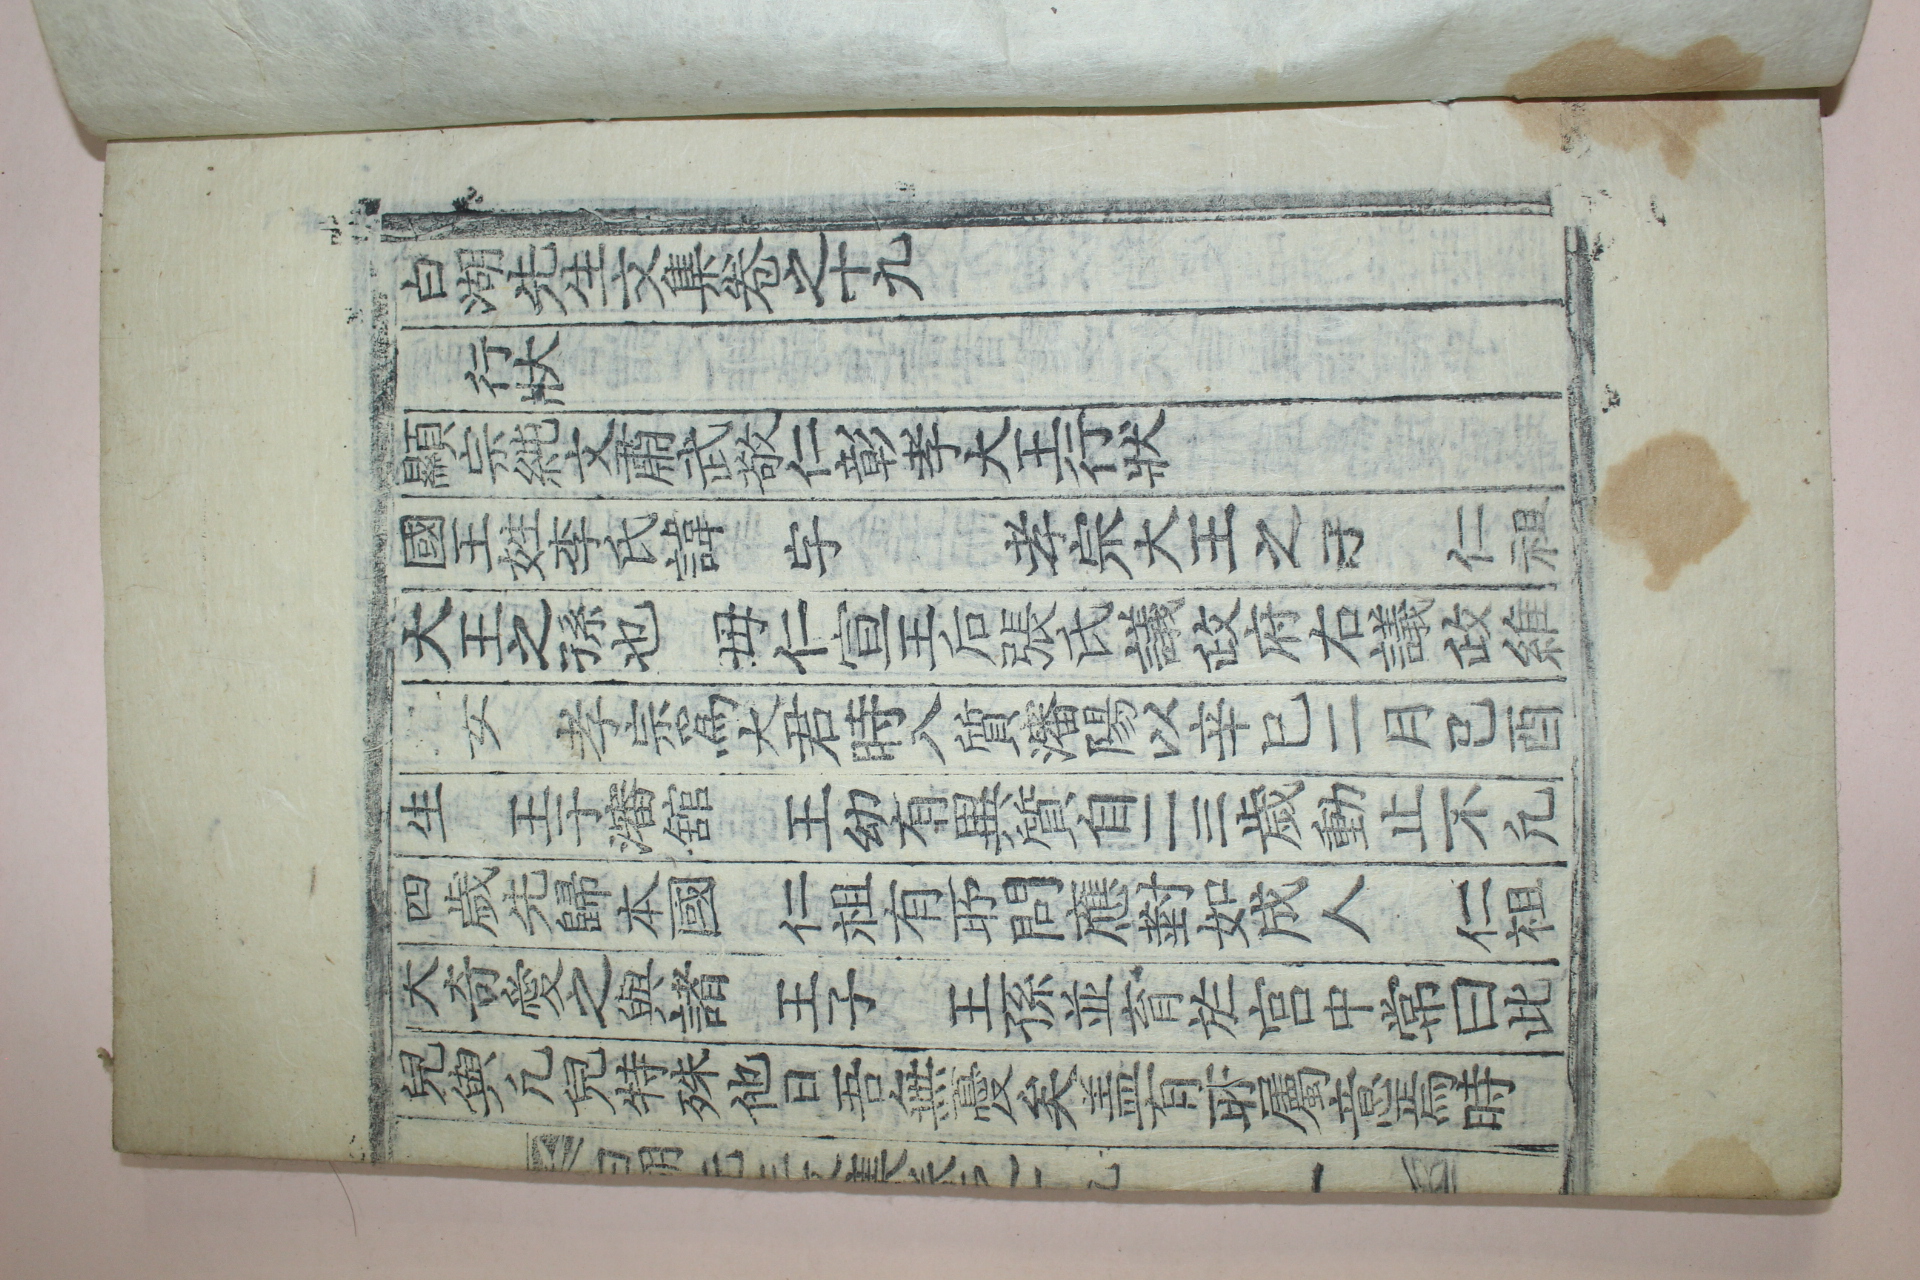 白湖先生文集卷之十九
行狀
顯宗純文肅武敬仁彰孝大王行狀
國王姓李氏諱 字 孝宗大王之子 仁祖
大王之孫也 母仁宣王后張氏議政府右議政維
女 孝宗爲大君時入質瀋陽以辛巳二月己酉
生 王于瀋館 王幼有異質自二三歲動止不凡
四歲先歸本國 仁祖有所問應對如成人 仁祖
大奇愛之與諸 王子 王孫並育於宮中常曰此
兒與凡兒特殊他日吾無憂矣盖有所屬意焉時
白湖先生文集卷之十九 一